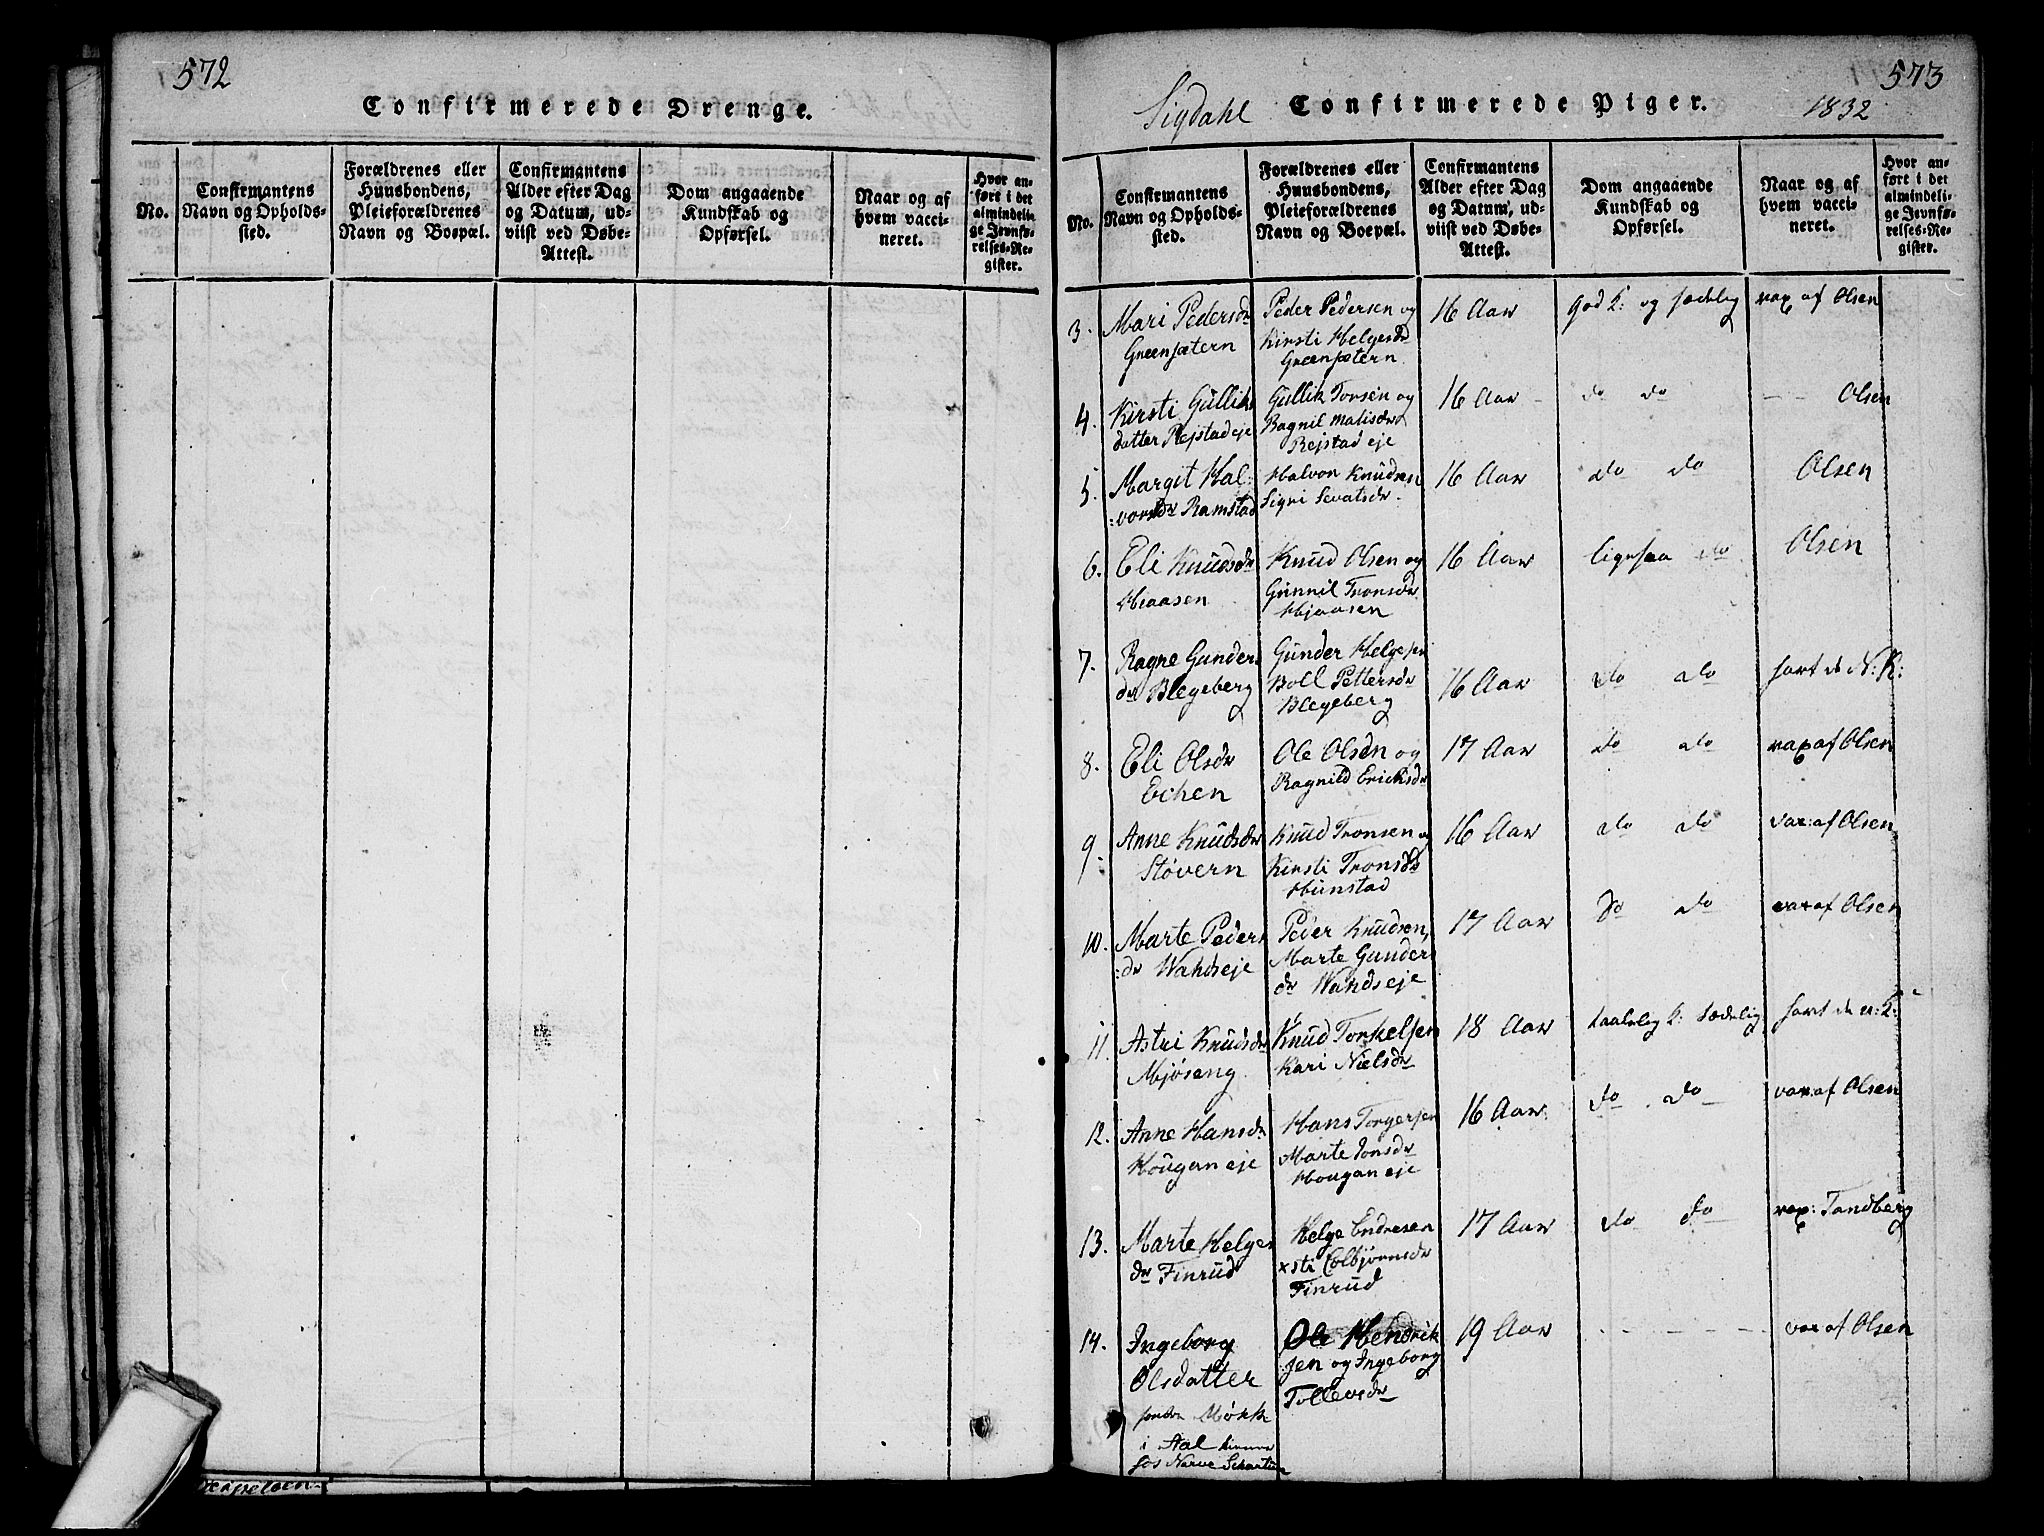 572
Confirmerede Drenge.
No.
Confirmantens
Navn og Opholds-
sted.
Forældrenes eller
Huusbondens,
Pleieforældrenes
Navn og Boepæl.
Confirmantens
Alder efter Dag
og Datum, ud-
viist ved Døbe-
Attest.
Dom angaaende
Kundskab og
Opførsel.
Naar og af
hvem vacci-
neret.
Hvor an-
ført i det
almindeli-
ge Jevnfø-
relses-Re-
gister.
Sigdahl
Confirmerede Piger.
573
1832
No.
Confirmantens
Navn og Opholds-
sted.
Forældrenes eller
Huusbondens,
Pleieforældrenes
Navn og Boepæl.
Confirmantens
Alder efter Dag
og Datum, ud-
viist ved Døbe-
Attest.
Dom angaaende
Kundskab og
Opførsel.
Naar og af
hvem vacci-
neret.
Hvor an-
ført i det
almindeli-
ge Jevnfø-
relses-Re-
gister.
3. Mari Pedersdr
Greensætern
Peder Pedersen og
Kirsti Helgesdr
Greensætern
16 Aar
god K: og sædelig
vax af Olsen
4. Kirsti Gulliks
datter Rejstad eje
Gullik Torsen og
Ragnil
Rejstad eje
16 Aar
do do
Olsen
5. Margit Hal
:vorsdr Ramstad
Halvor Knudsen
Sigri Sevatsdr
16 Aar
do do
Olsen
6. Eli Knudsdr
Hiaasen
Knud Olsen og
Gunnil Tronsdr
Hjaasen
16 Aar
ligesaa do
Olsen
7. Ragne Gunders
dr Blegeberg
Gunder Helgesen
Boll Pettersdr
Blegeberg
16 Aar
do do
havt de N: K:
8. Eli Olsdr
Echen
Ole Olsen og
Ragnild Ericksdr
17 Aar
do do
vax af Olsen
9. Anne Knudsdr
Støvern
Knud Tronsen og
Kirsti Tronsdr
Hunstad
16 Aar
do do
vax: af Olsen
10. Marte Peders
:dr Wahdseje
Peder Knudsen,
Marte Gunders
dr Wandseje
17 Aar
do do
vax af Olsen
11. Astri Knudsdr
Mjøseng
Knud Torkelsen
Kari Nielsdr
18 Aar
taalelig K: Sædelig
havt de n: K:
12. Anne Hansdr
Hougan eje
Hans Torgersen
Marte Jonsdr
Hougan eje
16 Aar
do do
vax af Olsen
13. Marte Helges
dr Finrud
Helge Endresen
xsti Colbjørnsdr
Finrud
17 Aar
do do
vax: Tandberg
14. Ingeborg
Olsdatter
Møkk
i Aal
hos Narve
Ole Hendrik
sen og Ingeborg
Tollevsdr
19 Aar
- - - - -
vax af Olsen